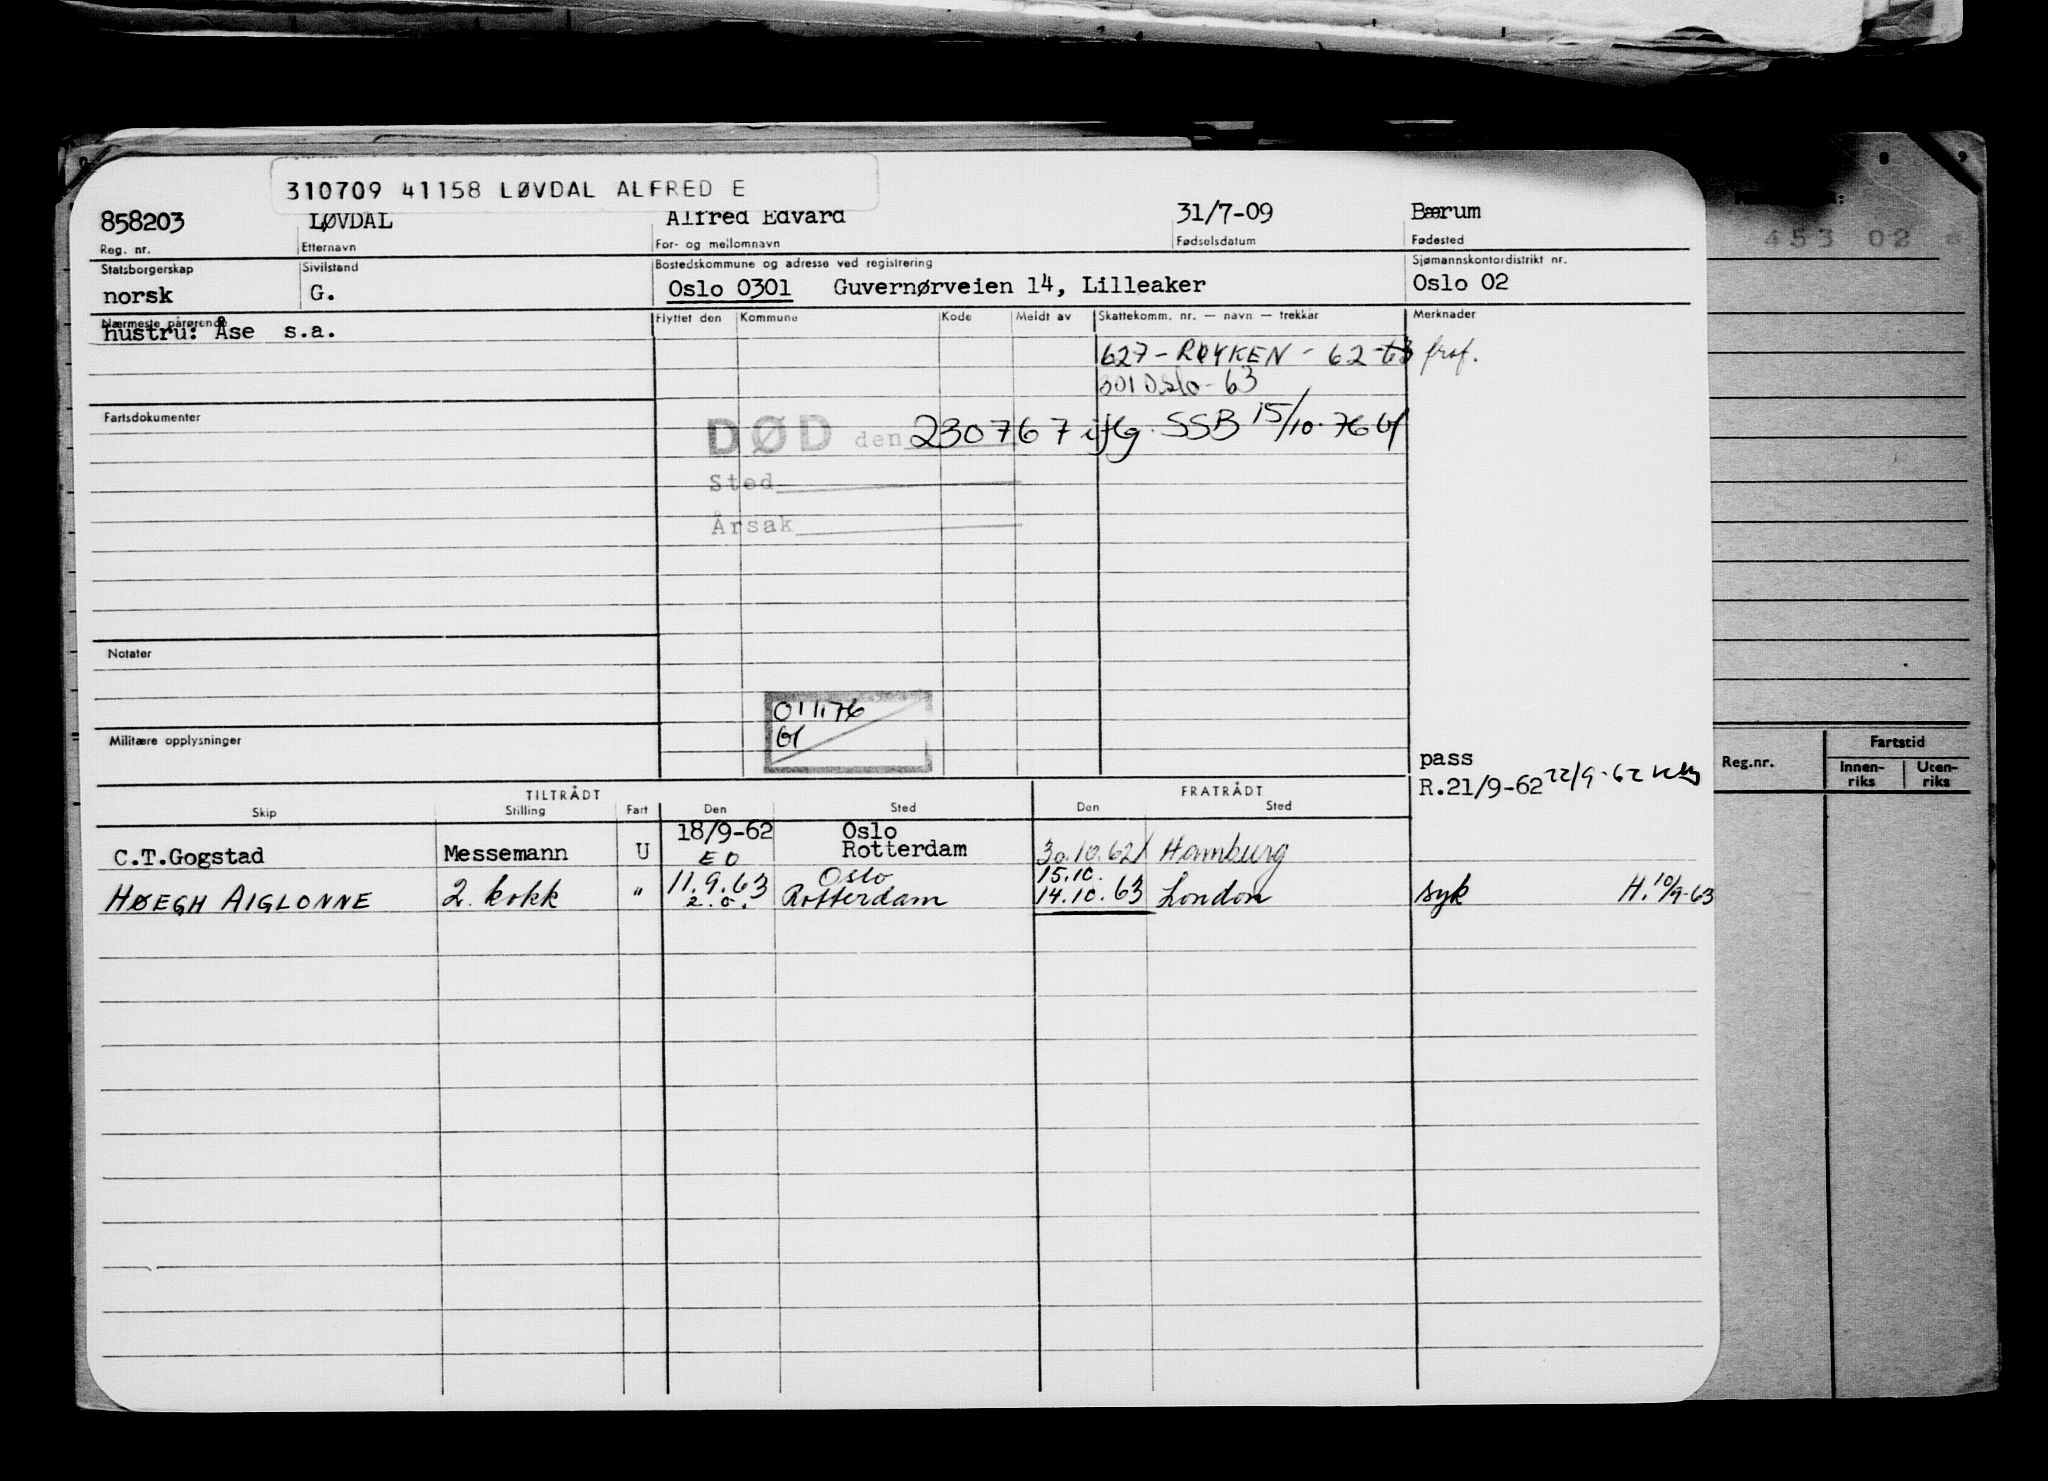 310709 41158 LØVDAL ALFRED E
858203 LØVDAL Alfred Edvard 31/7-09 Bærum
Reg. nr. Etternavn For- og mellomnavn Fødselsdatum Fødested
453 02
Statsborgerskap Sivilstand Bostedskommune og adresse ved registrering Sjømannskontordistrikt nr.
norsk G. Oslo 0301 Guvernørveien 14, Lilleaker Oslo 02
Nærmeste pårørende Flyttet den Kommune Kode Meldt av Skattekomm. nr. — navn — trekkår Merknader
hustru: Åse s.a.
627 - RØYKEN - 62-63 fraf.
301 Oslo - 63
Fartsdokumenter
DØD den 230767 iflg. SSB 15/10-76
Sted
Årsak
Notater
011176
Militære opplysninger
pass
R.21/9-62 22/9-62
Reg.nr. Fartstid
Innen-riks Uten-riks
TILTRÅDT FRATRÅDT
Skip Stilling Fart Den Sted Den Sted
18/9-62 Oslo
C.T.Gogstad Messemann U EO Rotterdam 30.10.62 Hamburg
11.9.63 Oslo 15.10.
HØEGH AIGLONNE 2. kokk " 2.o. Rotterdam 14.10.63 London syk H.10/9-63